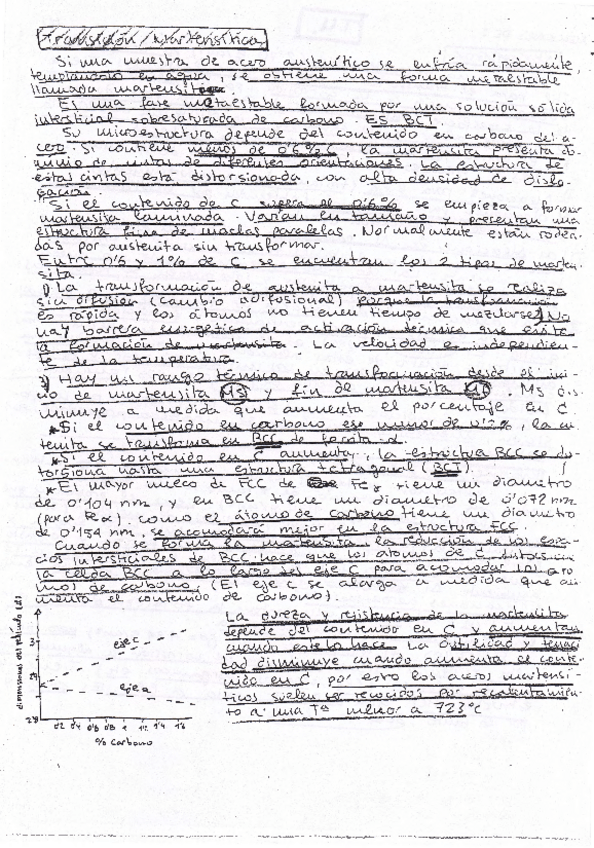 Transición Martensítica
Si una muestra de acero austenítico se enfría rápidamente,
templándolo en agua, se obtiene una forma metaestable
llamada martensita
Es una fase metaestable formada por una solución sólida
intersticial sobresaturada de carbono. ES BCT
Su microestructura depende del contenido en carbono del a-
cero. Si contiene menos de 0'6% C, la martensita presenta do-
minio de cintas de diferentes orientaciones. La estructura de
estas cintas está distorsionada, con alta densidad de dislo-
cación.
Si el contenido de C supera el 0'6% se empieza a formar
martensita laminada. Varían en tamaño y presentan una
estructura fina de maclas paralelas. Normalmente están rodea-
das por austenita sin transformar.
Entre 0'6 y 1% de C se encuentran los 2 tipos de marten-
sita.
1) La transformación de austenita a martensita se realiza
sin difusión (cambio adifusional) porque la transformación
es rápida y los átomos no tienen tiempo de mezclarse. No
hay barrera energética de activación térmica que evite
la formación de martensita. La velocidad es independien-
te de la temperatura.
3) Hay un rango térmico de transformación desde el ini-
cio de martensita Ms y fin de martensita Mf. Ms dis-
minuye a medida que aumenta el porcentaje en C
*Si el contenido en carbono es menor de 0'2%, la aus-
tenita se transforma en BCC de ferrita α.
*Si el contenido en C aumenta, la estructura BCC se dis-
torsiona hasta una estructura tetragonal (BCT).
*El mayor hueco de FCC de Fe γ tiene un diametro
de 0'104 nm, y en BCC tiene un diametro de 0'072 nm
(para Fe α). como el átomo de carbono tiene un diametro
de 0'154 nm, se acomodará mejor en la estructura FCC.
Cuando se forma la martensita la reducción de los espa-
cios intersticiales de BCC hace que los átomos de C distorsionen
la celda BCC a lo largo del eje C para acomodar los áto-
mos de carbono. (El eje c se alarga a medida que au-
menta el contenido de carbono).
La dureza y resistencia de la martensita
depende del contenido en C y aumentan
cuando este lo hace. La ductilidad y tenaci-
dad disminuye cuando aumenta el conte-
nido en C, por esto los aceros martensí-
ticos suelen ser revenidos por recalentamien-
to a una Tª menor a 723ºC
eje c
eje a
3
0'2 0'4 0'6 0'8 1 1'2 1'4 1'6
% carbono